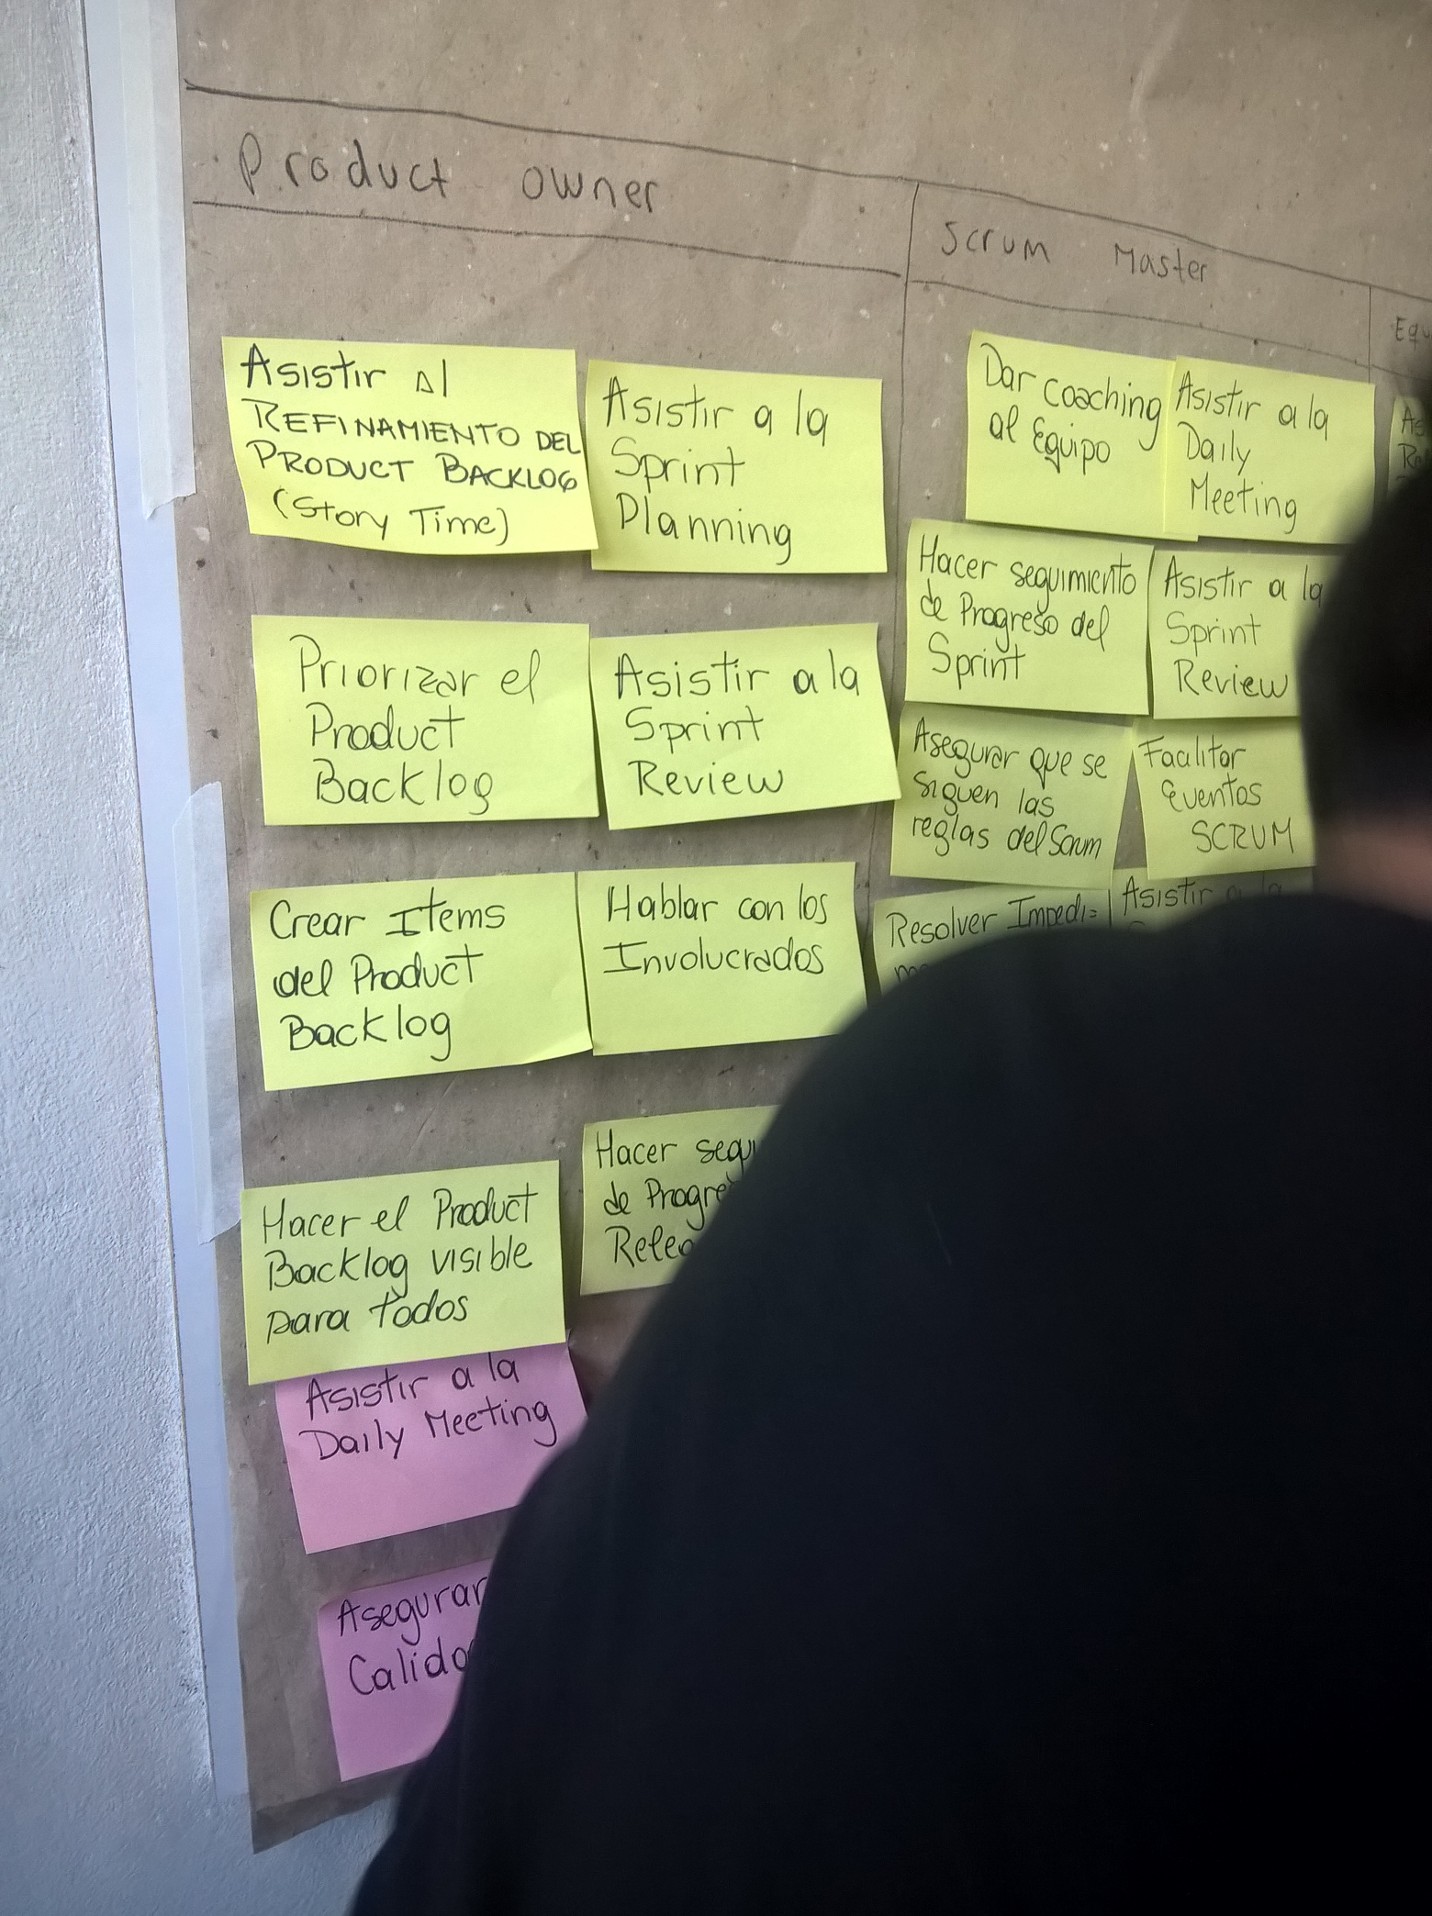 Product owner
Scrum Master
Asistir Al
REFINAMIENTO DEL
PRODUCT BACKLOG
(Story Time)
Asistir a la
Sprint
Planning
Priorizar el
Product
Backlog
Asistir a la
Sprint
Review
Crear Items
del Product
Backlog
Hablar con los
Involucrados
Hacer el Product
Backlog visible
para todos
Hacer
de
Asistir a la
Daily Meeting
Asegurar
Dar coaching
al Equipo
Asistir a la
Daily
Meeting
Hacer seguimiento
de Progreso del
Sprint
Asistir a la
Sprint
Review
Asegurar que se
siguen las
reglas del Scrum
Facilitar
Eventos
SCRUM
Resolver Impedi=
Asistir a la